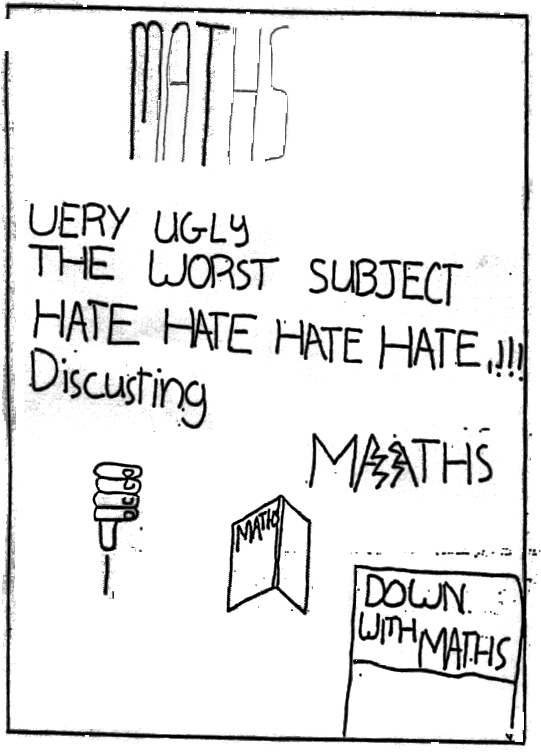 MATHS
VERY UGLY
THE WORST SUBJECT
HATE HATE HATE HATE.!!!
Discusting
MAATHS
MATHS
DOWN
WITH MATHS